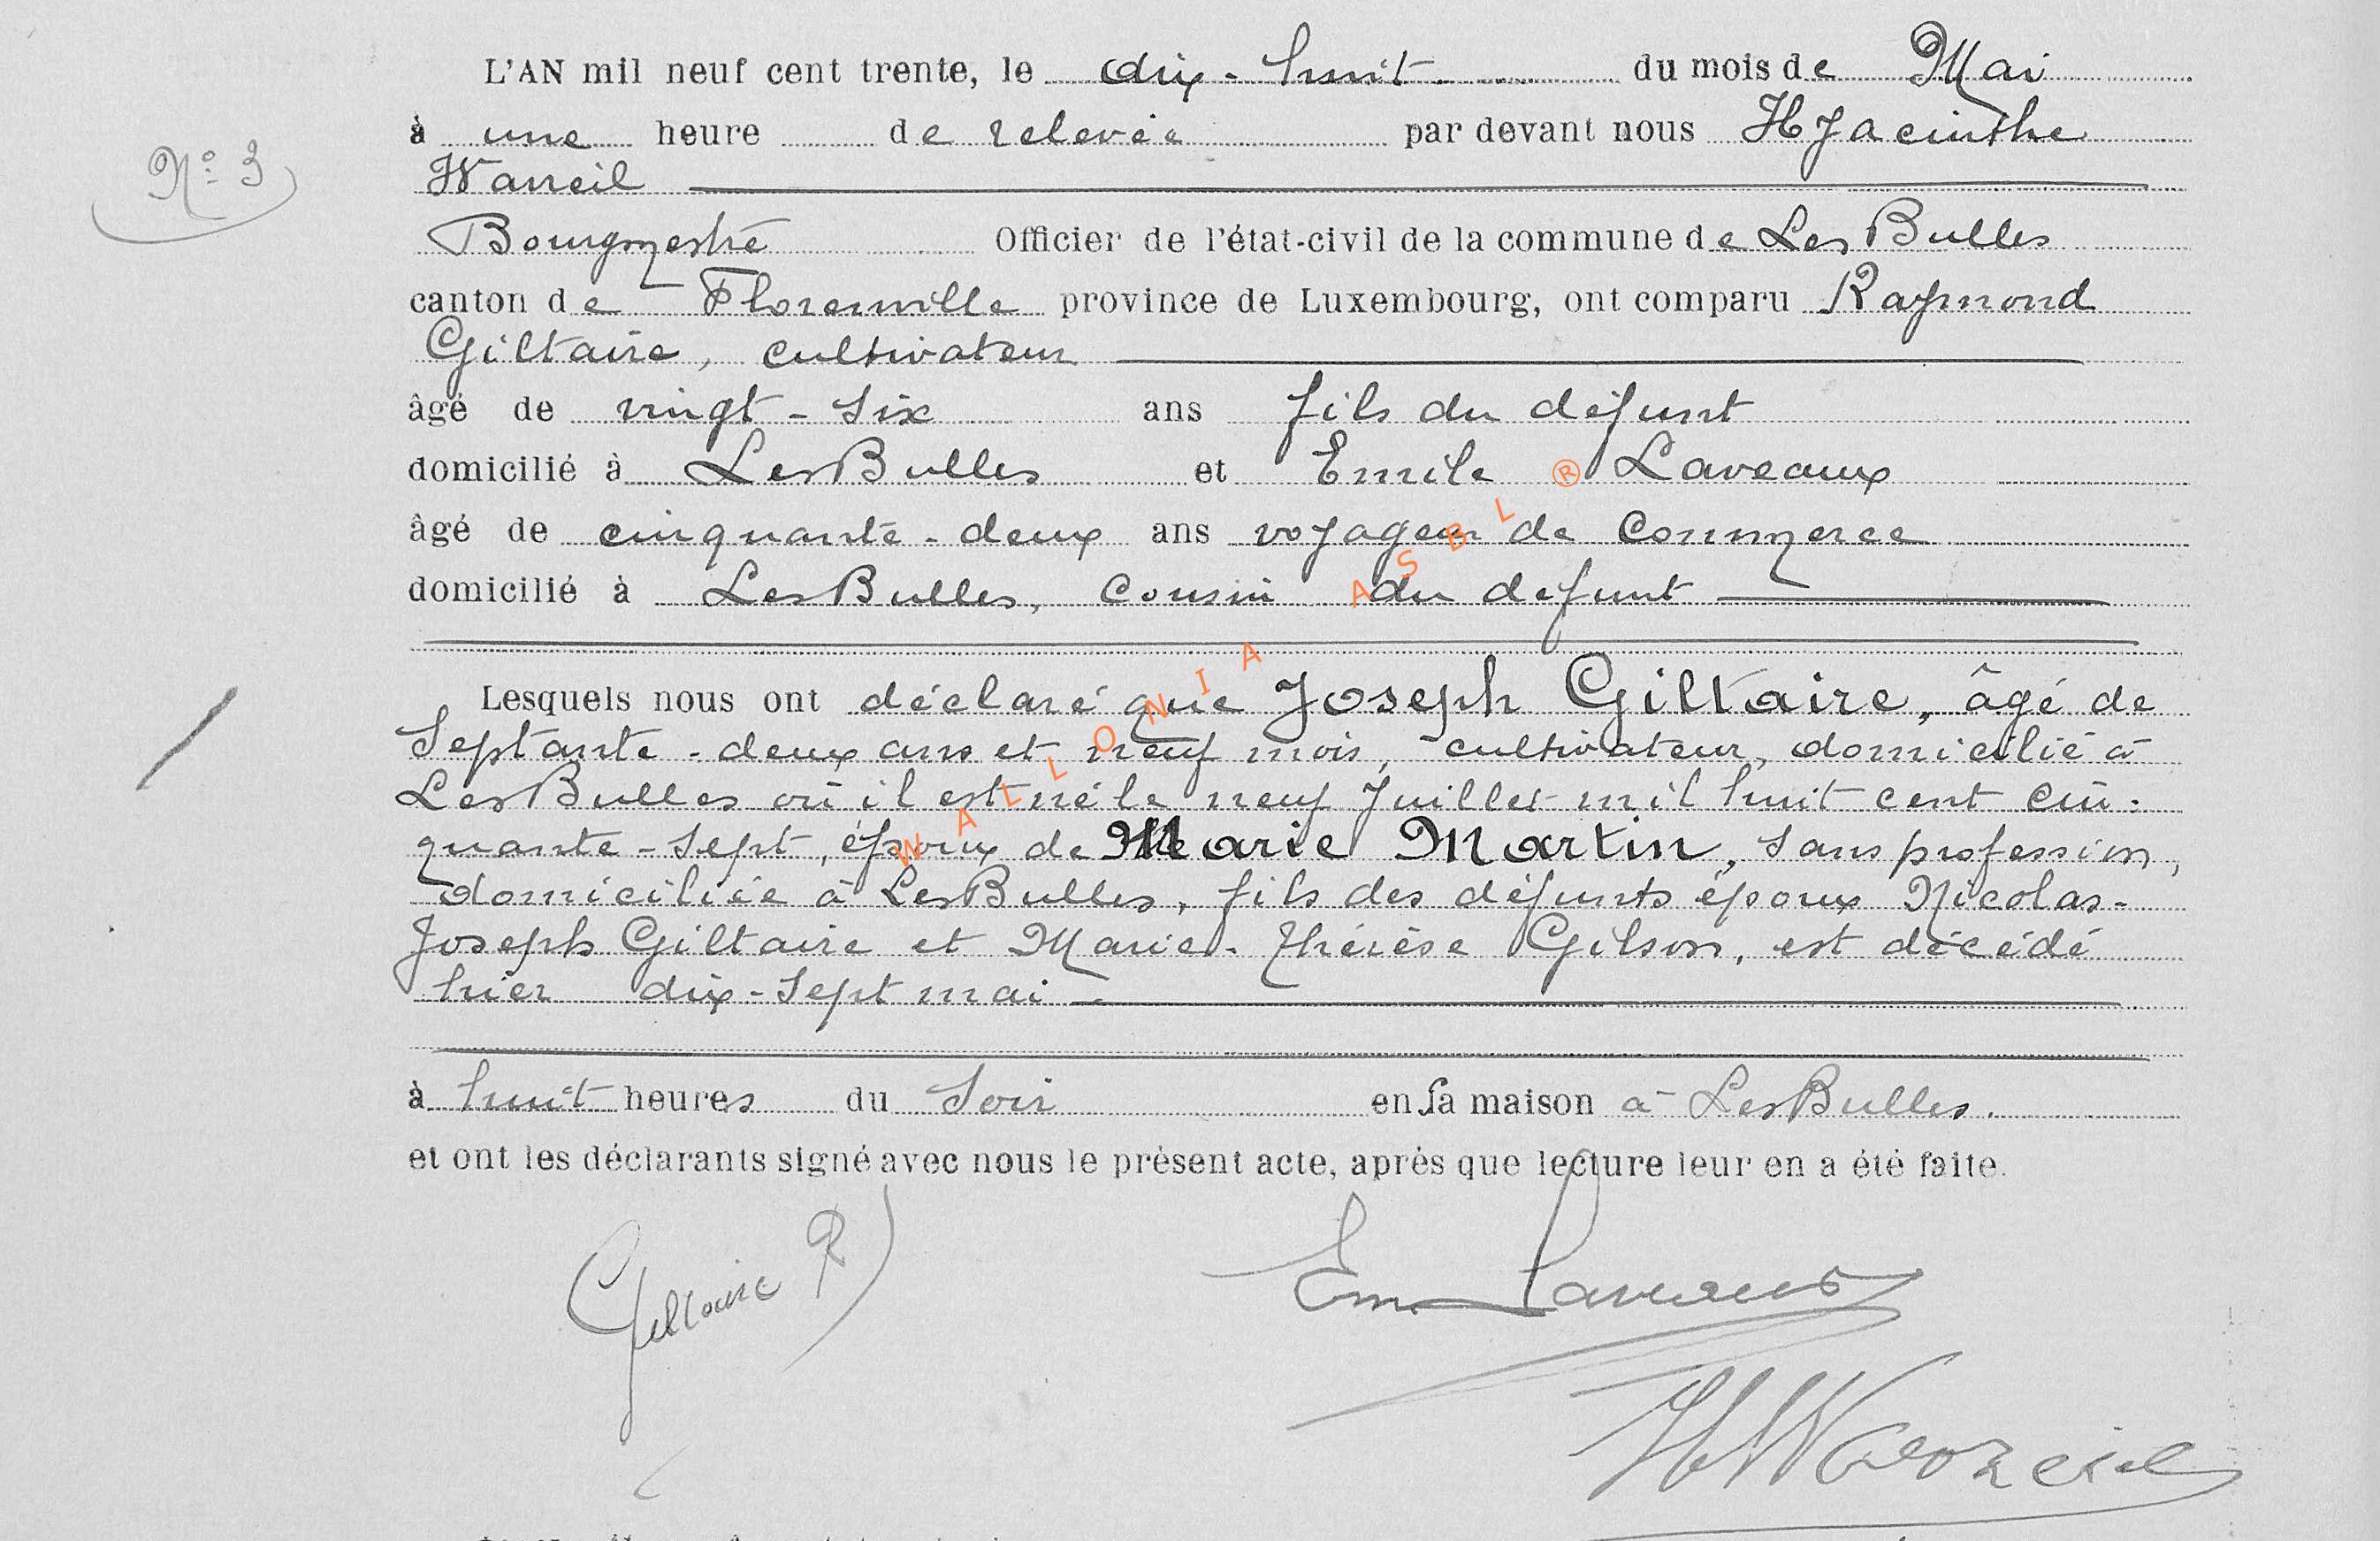 L'AN mil neuf cent trente, le dix-huit du mois de Mai
à une heure de relevée par devant nous Hyacinthe
N° 3
Warzeil
Bourgmestre Officier de l'état-civil de la commune de Les Bulles
canton de Florenville province de Luxembourg, ont comparu Raymond
Giltaire, cultivateur
âgé de vingt-six ans fils du défunt
domicilié à Les Bulles et Emile Laveaux
âgé de cinquante-deux ans voyageur de commerce
domicilié à Les Bulles, cousin du défunt
Lesquels nous ont déclaré que Joseph Giltaire, âgé de
Septante-deux ans et neuf mois, cultivateur, domicilié à
Les Bulles où il est né le neuf Juillet mil huit cent cin-
quante-sept, époux de Marie Martin, sans profession,
domiciliée à Les Bulles, fils des défunts époux Nicolas-
Joseph Giltaire et Marie-Thérèse Gilson, est décédé
hier dix-sept mai
à huit heures du soir en sa maison à Les Bulles.
et ont les déclarants signé avec nous le présent acte, après que lecture leur en a été faite.
Giltaire R
Em. Laveaux
H Warzeil
WALLONIA ASBL ®